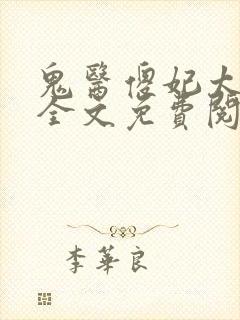 鬼醫傻妃大
全文免費閱
李華良